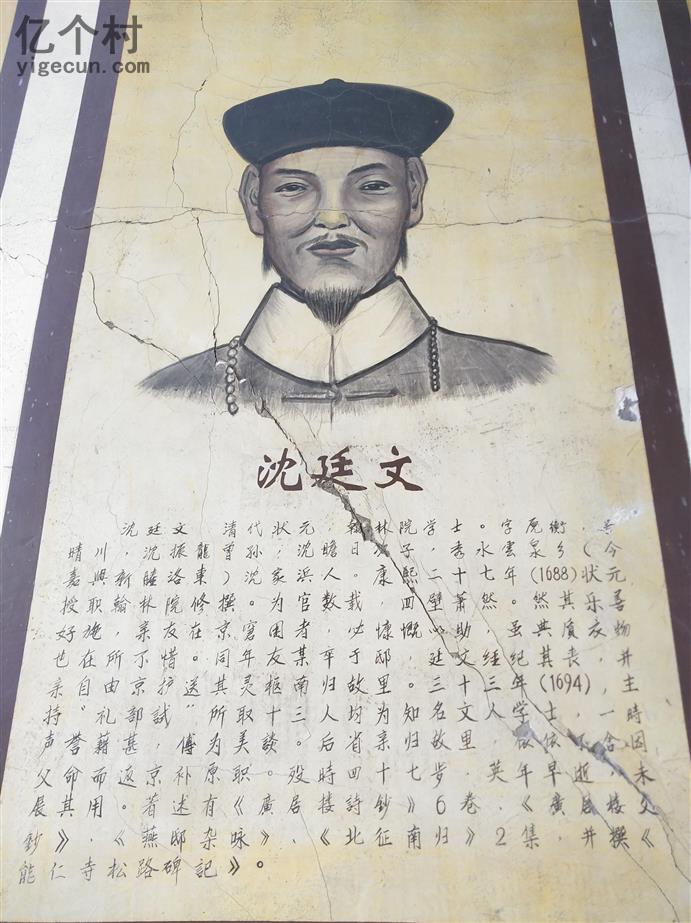 亿个村
yigecun.com
沈廷文
沈廷文 清代状元,翰林院学士。字原衡,
晴川,沈振龍曾孙,沈瞻日次子,秀水雲泉乡(今
嘉興新塍洛東)沈家浜人。康熙二十七年(1688)状元
授职翰林院修撰。为官数载,四壁萧然,然其乐善
好施,亲友在京窘困者,必慷慨以助。虽典质衣物
也在所不惜。同年友某卒于邸,廷文经纪其丧,并
亲自由京护送其灵柩南归故里。三十三年(1694),主
持"礼部試"所取十三人均为知名文人学士,一時
声誉藉甚,傳为美談。后省亲归故里,依依不舍,因
父命而返京补原职。殁時四十七步,英年早逝,未
展其用。著述有《廣居接詩鈔》6卷、《廣居接文
鈔》,《燕邸杂咏》、《北征南归》2集,并撰《
能仁寺松路碑記》。